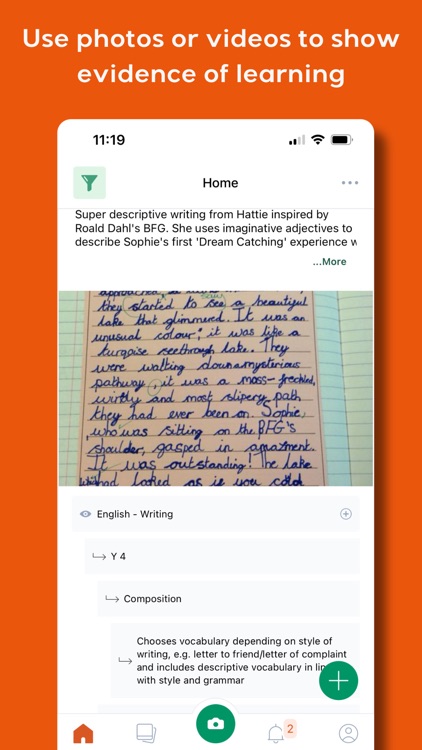 Use photos or videos to show
evidence of learning
11:19
Home
Super descriptive writing from Hattie inspired by
Roald Dahl's BFG. She uses imaginative adjectives to
describe Sophie's first 'Dream Catching' experience w
...More
approached
they started to see a beautiful
lake that glimmered. It was an
unusual colour; it was like a
turqoise seethrough lake. They
were walking down a mysterious
pathway, it was a moss-freckled,
and most slipery path
they had ever been on. Sophie,
who was sitting on the BFG's
shoulder, gasped in amazment.
It was outstanding! The lake
had looked as if you cold
English - Writing
Y 4
Composition
Chooses vocabulary depending on style of
writing, e.g. letter to friend/letter of complaint
and includes descriptive vocabulary in lin
with style and grammar
2